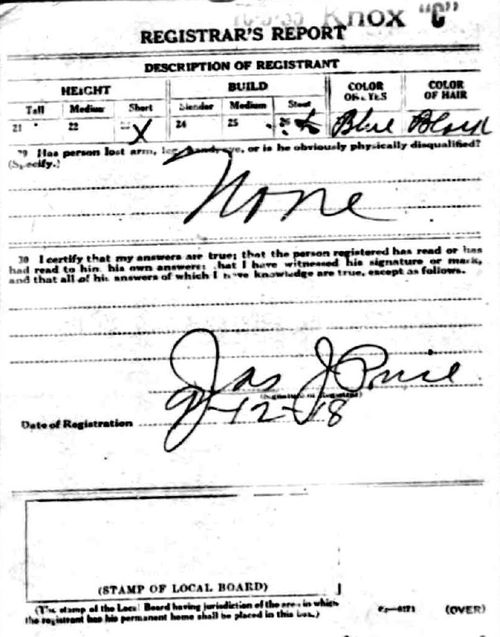 Knox "C"
REGISTRAR'S REPORT
DESCRIPTION OF REGISTRANT
HEIGHT BUILD COLOR OF EYES COLOR OF HAIR
Tall Medium Short Slender Medium Stout
21 22 X 24 25 26 x Blue Blond
29 Has person lost arm, leg, hand, eye, or is he obviously physically disqualified?
(Specify.)
None
30 I certify that my answers are true; that the person registered has read or has
had read to him his own answers; that I have witnessed his signature or mark,
and that all of his answers of which I have knowledge are true, except as follows.
Jas J Price
(Signature of Registrar)
Date of Registration 9-12-18
(STAMP OF LOCAL BOARD)
(The stamp of the Local Board having jurisdiction of the area in which
the registrant has his permanent home shall be placed in this box.)
(OVER)